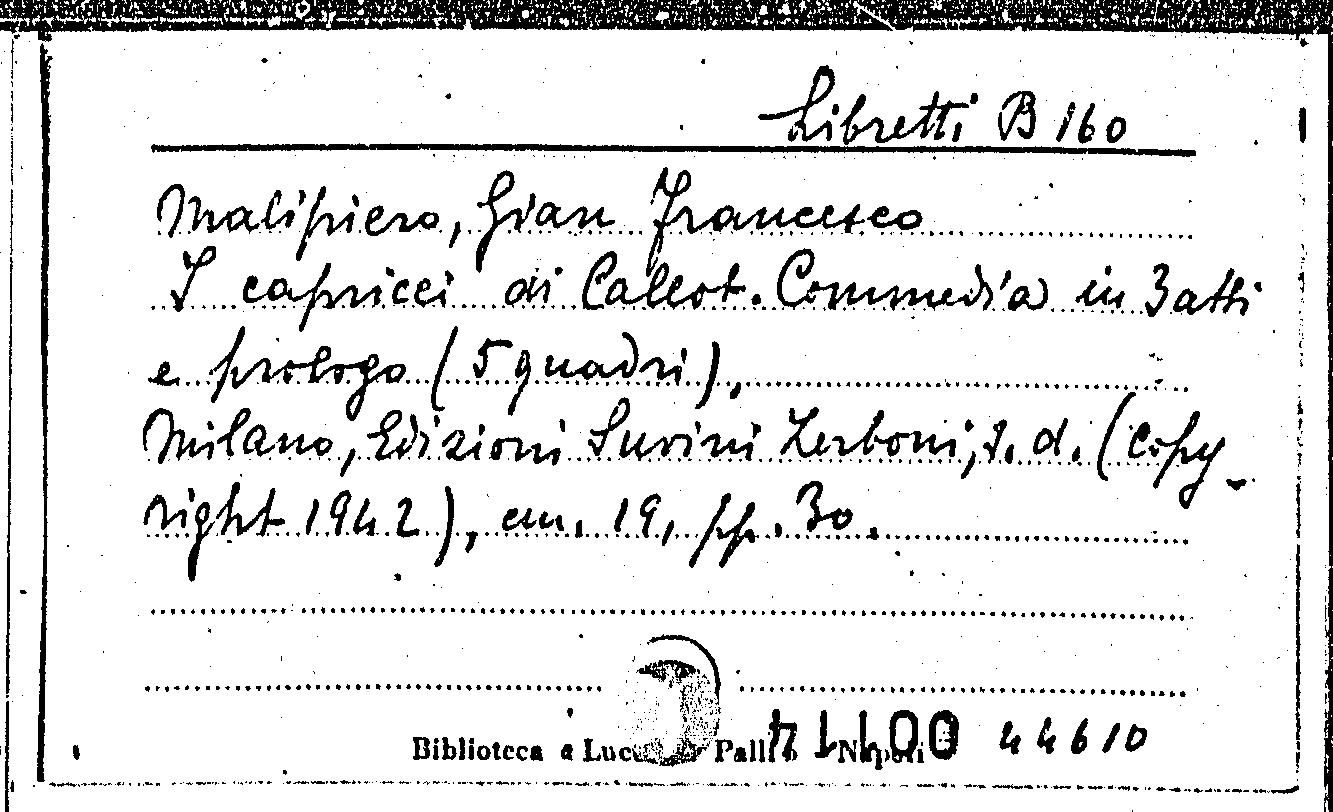 Libretti B 160
Malipiero, Gian Francesco
I capricci di Callot. Commedia in 3 atti
e prologo (5 quadri),
Milano, Edizioni Suvini Zerboni, s. d. (copy-
right 1942), cm. 19, pp. 30.
Biblioteca Napoli 44610